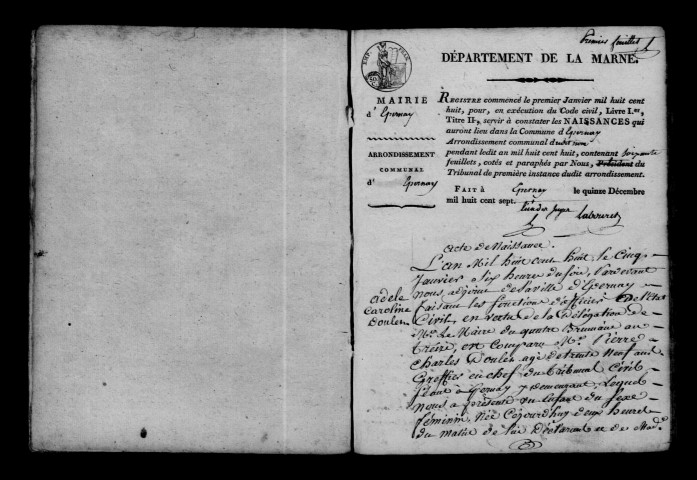 Premier feuillet
DÉPARTEMENT DE LA MARNE.
MAIRIE
d'Epernay
ARRONDISSEMENT
COMMUNAL
d' Epernay
REGISTRE commencé le premier Janvier mil huit cent
huit, pour, en exécution du Code civil, Livre I.er,
Titre II, servir à constater les NAISSANCES qui
auront lieu dans la Commune d'Epernay
Arrondissement communal dudit nom
pendant ledit an mil huit cent huit, contenant soixante
feuillets, cotés et paraphés par Nous, Président du
Tribunal de première instance dudit arrondissement.
FAIT à Epernay le quinze Décembre
mil huit cent sept.
adele
Caroline
Doulen
acte de Naissance.
L'an Mil huit cent huit, le Cinq
Janvier a Six heures du soir, Pardevant
nous, adjoint de la ville d'Epernay
faisant les fonctions d'officier de l'état
Civil, en vertu de la Délégation de
Mr. Le Maire du quatre Brumaire an
treize, est Comparu Mr. Pierre
Charles Doulen agé de trente Neuf ans
Greffier en chef du tribunal Civil
séant à Epernay y demeurant, Lequel
nous a présenté un Enfant du sexe
féminin, née Cejourdhuy deux heures
du matin de lui Déclarant et de Mad.e